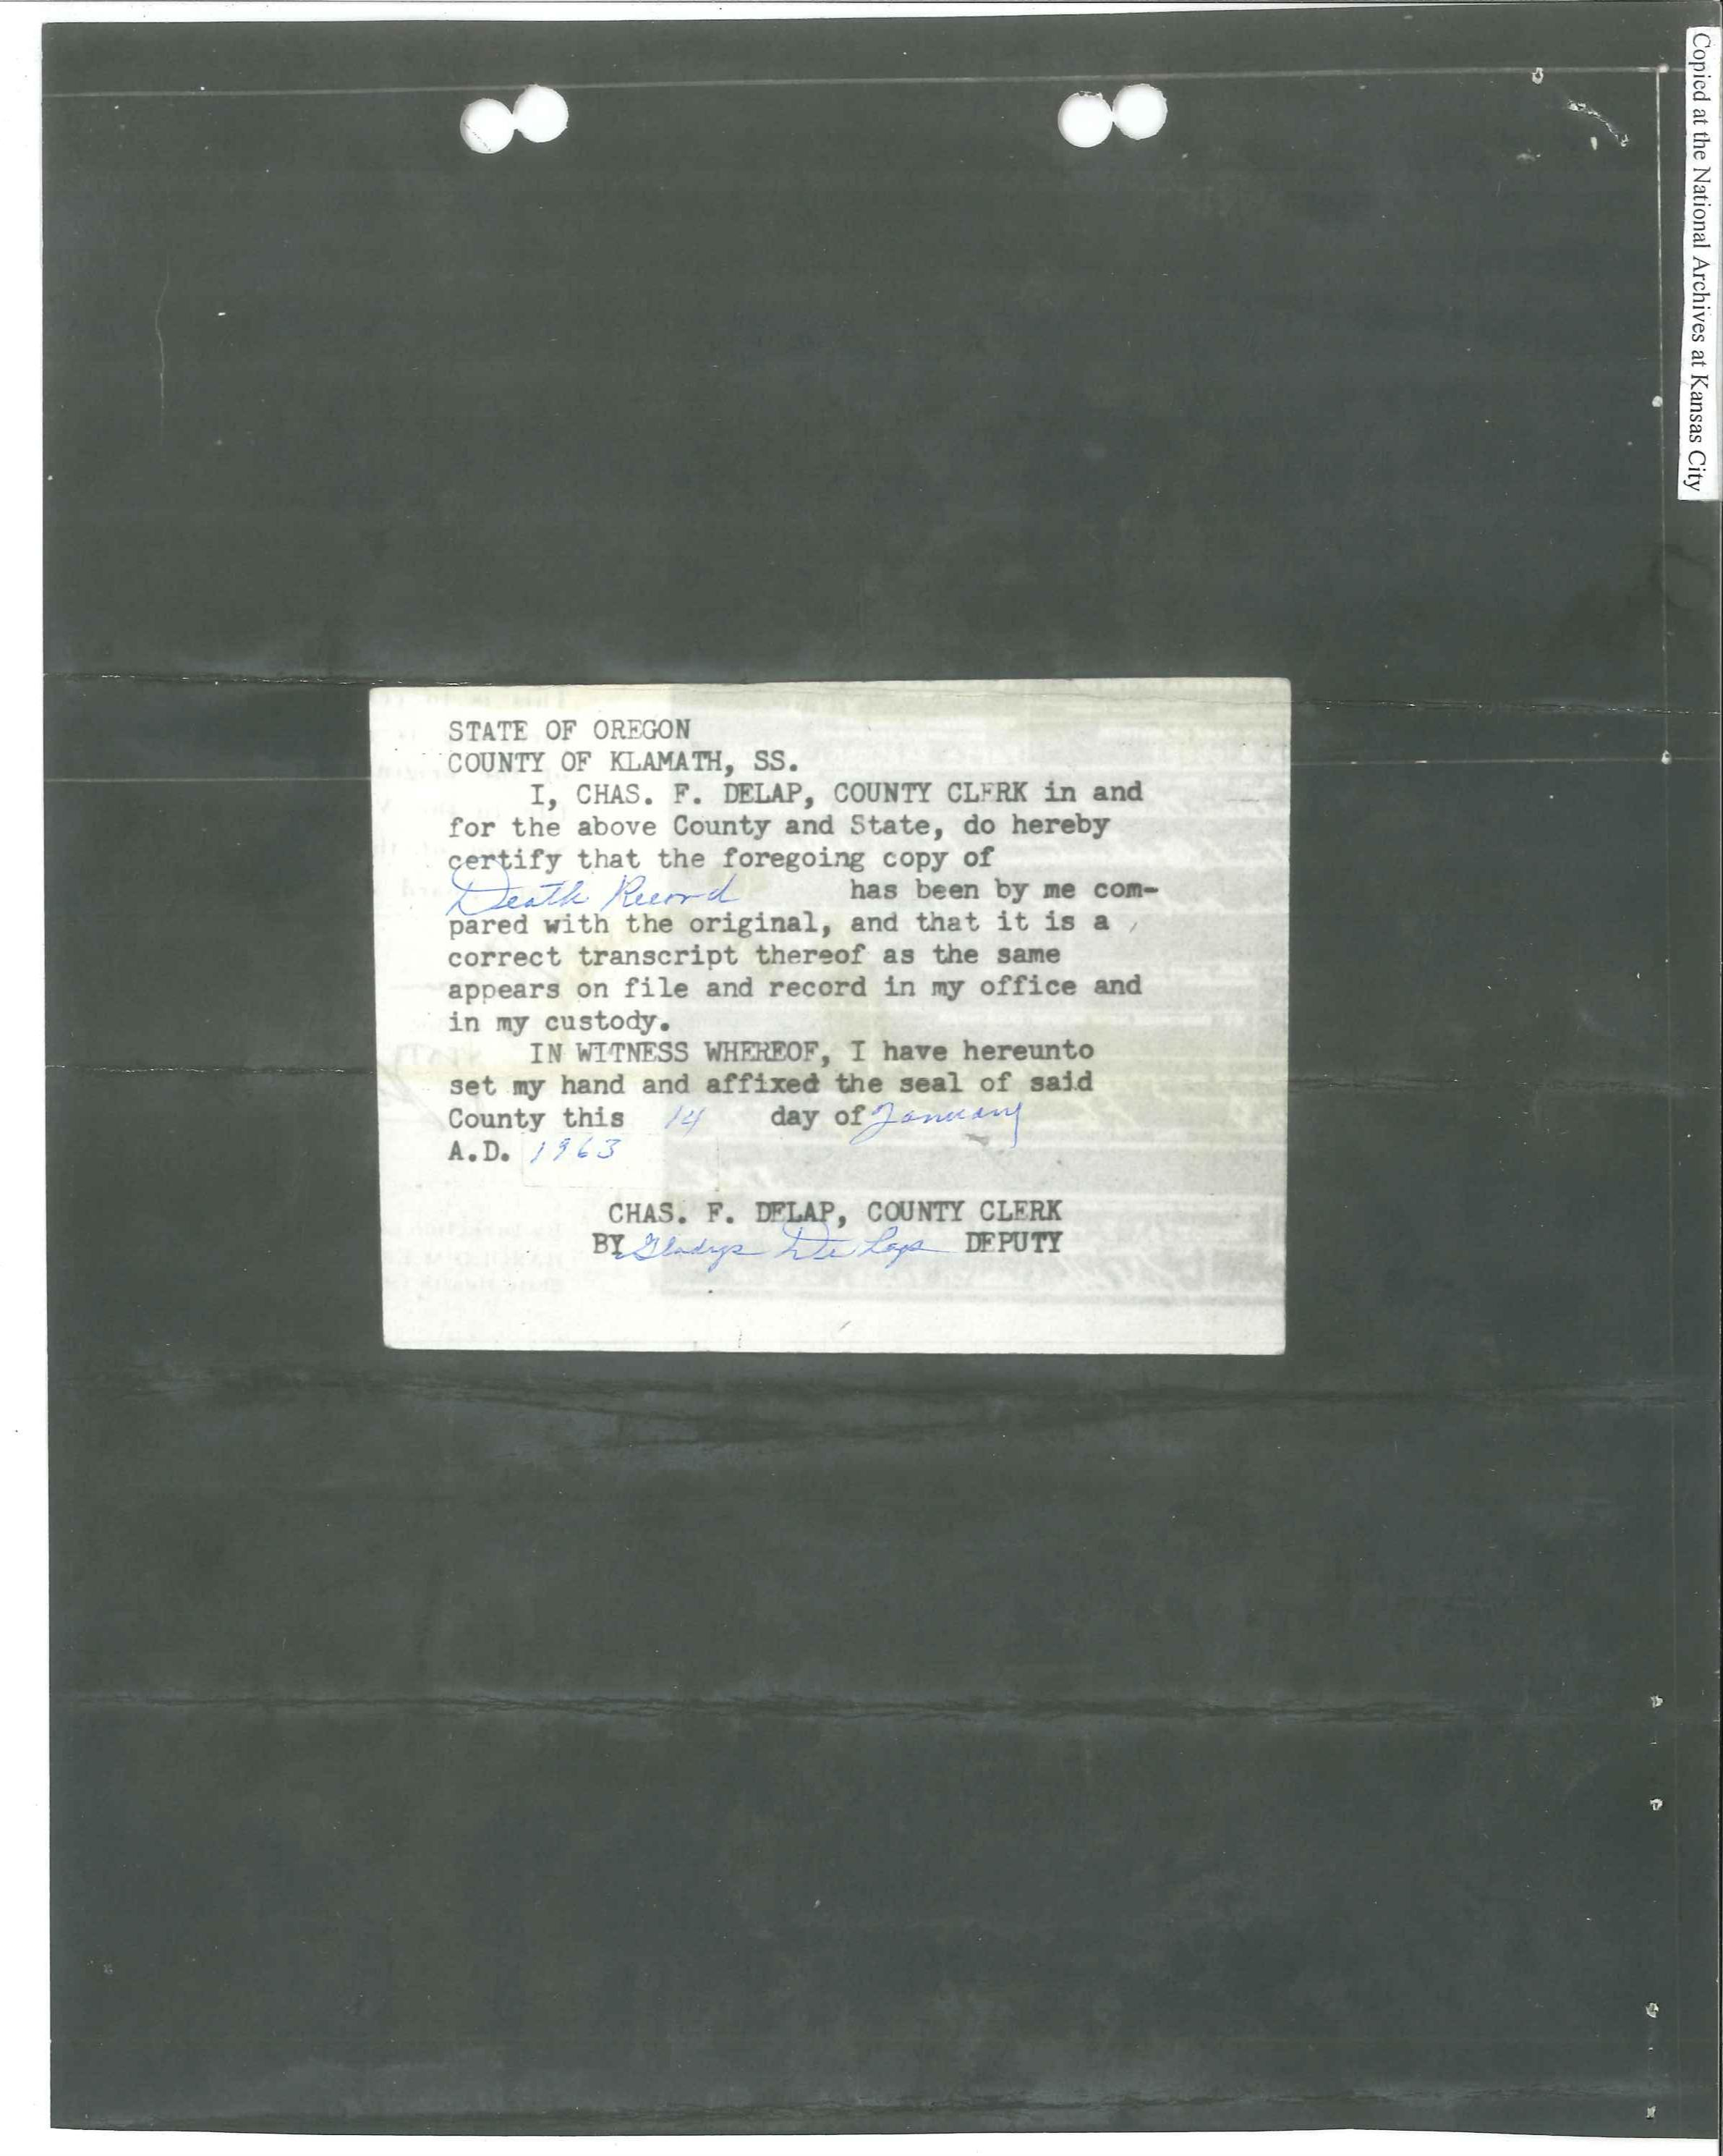 Copied at the National Archives at Kansas City
STATE OF OREGON
COUNTY OF KLAMATH, SS.
I, CHAS. F. DELAP, COUNTY CLERK in and
for the above County and State, do hereby
certify that the foregoing copy of
Death Record has been by me com-
pared with the original, and that it is a
correct transcript thereof as the same
appears on file and record in my office and
in my custody.
IN WITNESS WHEREOF, I have hereunto
set my hand and affixed the seal of said
County this 14 day of January
A.D. 1963
CHAS. F. DELAP, COUNTY CLERK
BY Gladys DeLap DEPUTY